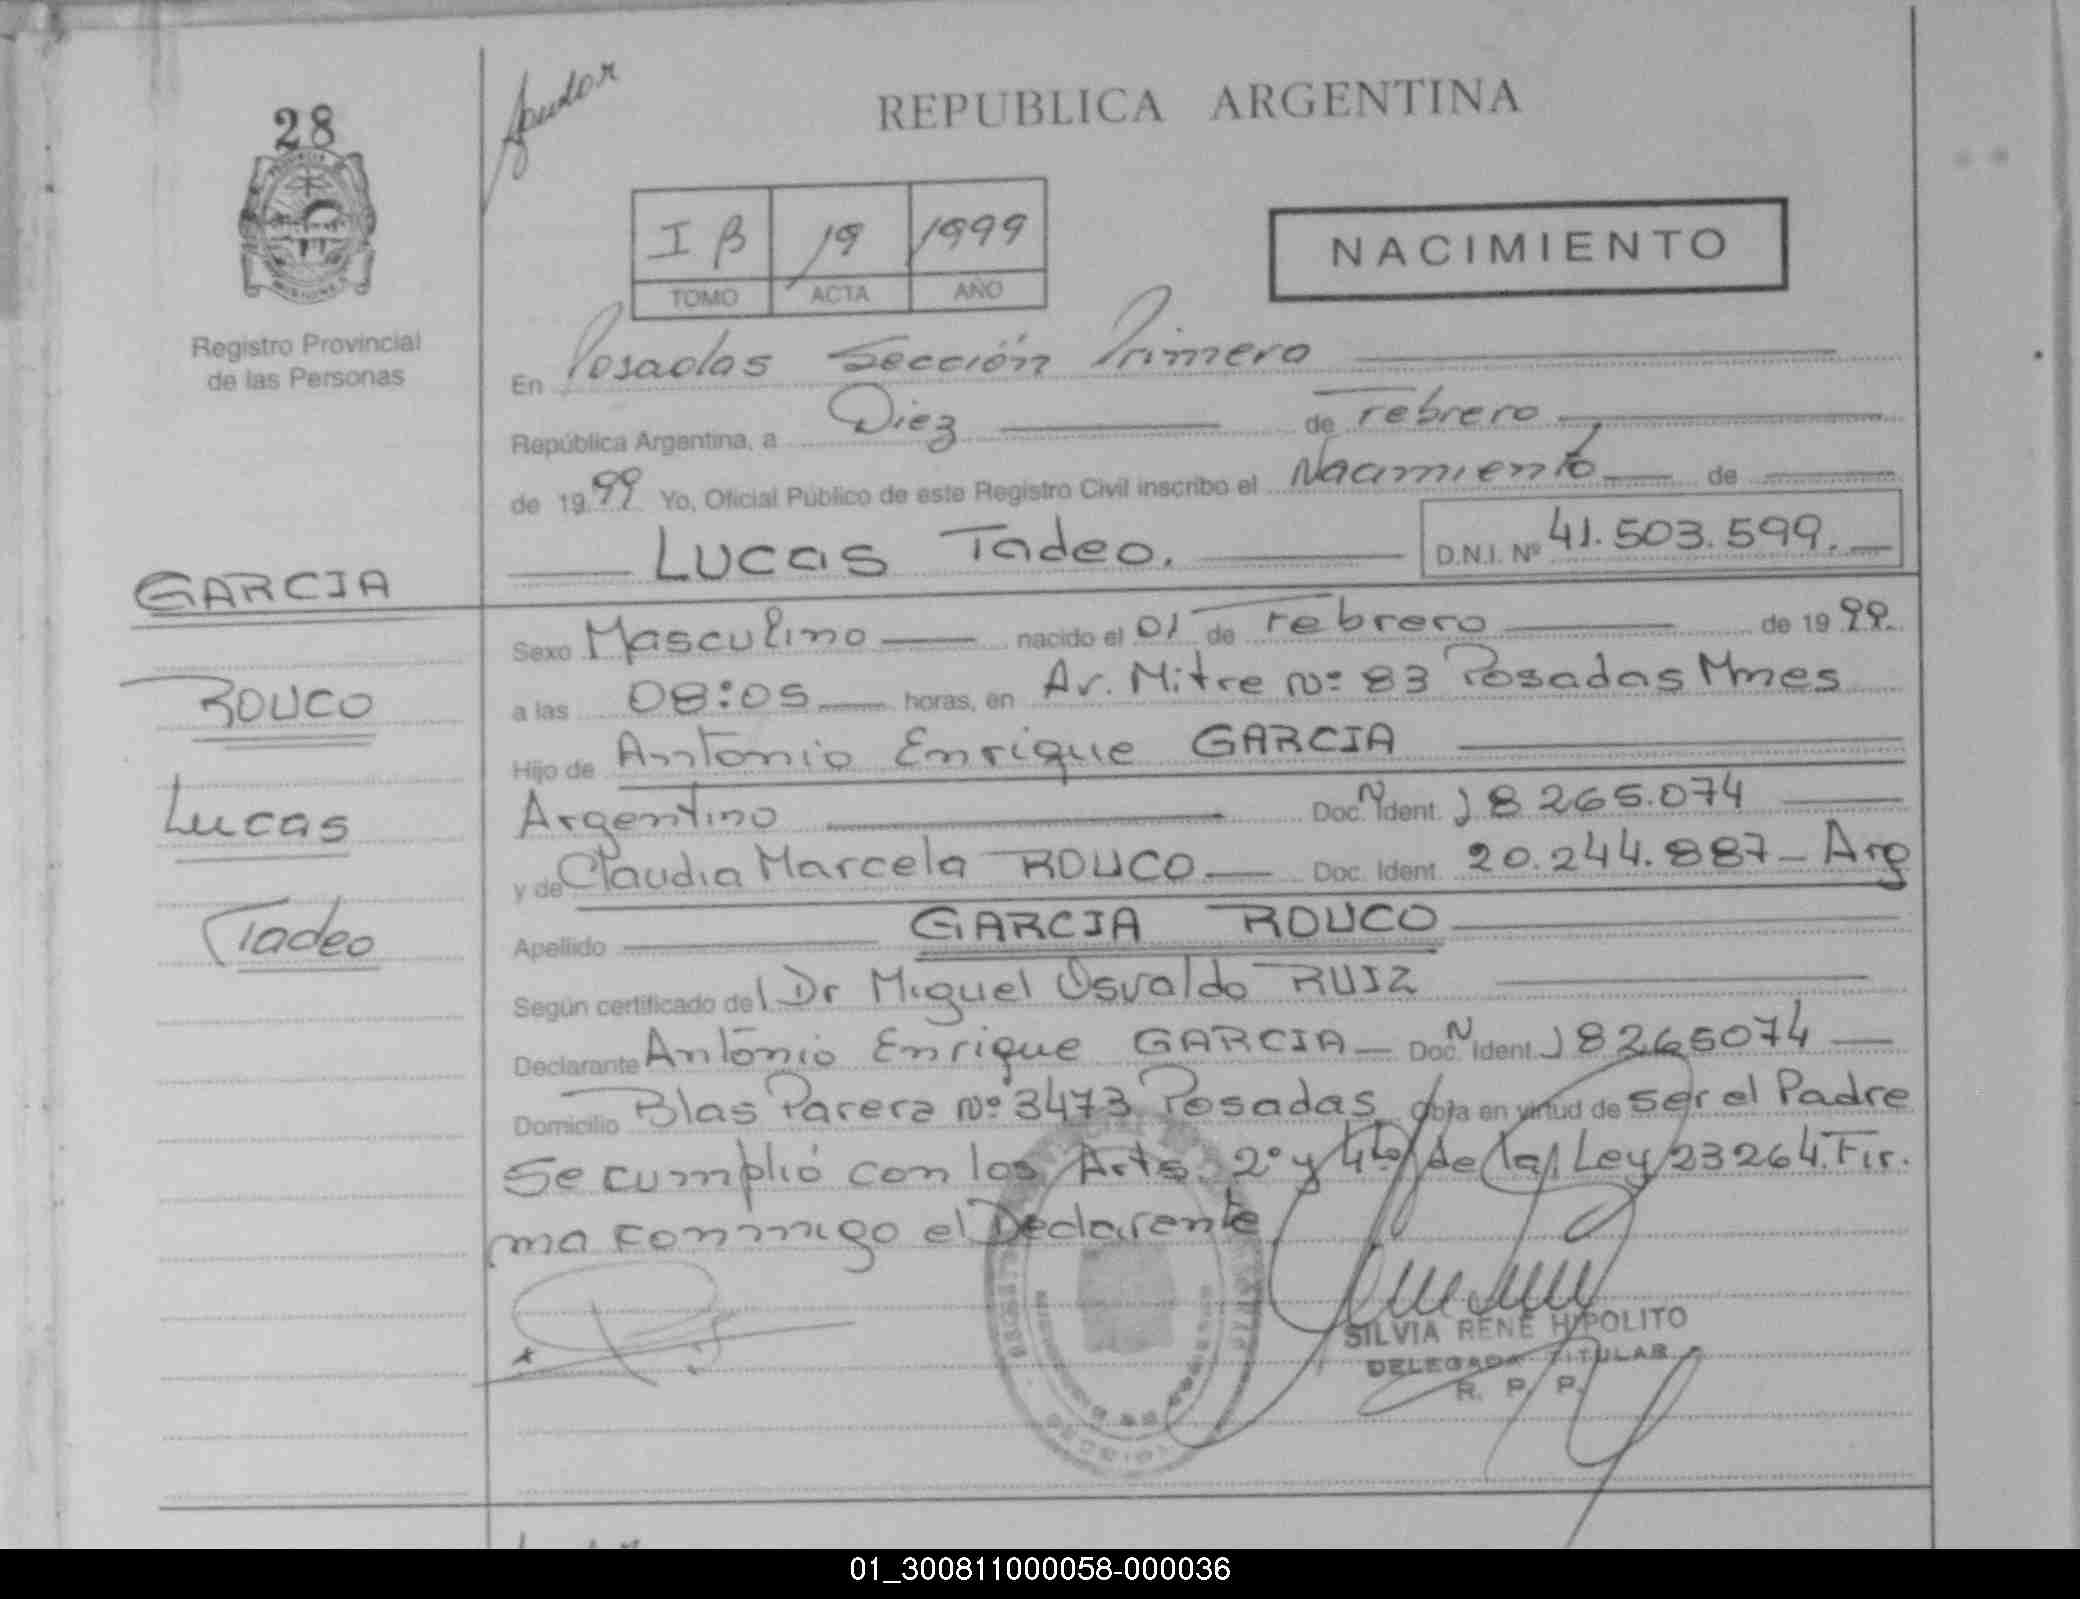 28
Registro Provincial
de las Personas
REPUBLICA ARGENTINA
I B 19 1999
TOMO ACTA AÑO
NACIMIENTO
En Posadas Sección Primera
República Argentina, a Diez de Febrero
de 1999 Yo, Oficial Público de este Registro Civil inscribo el Nacimiento de
Lucas Tadeo. D.N.I. Nº 41.503.599.
GARCIA
ROUCO
Lucas
Tadeo
Sexo Masculino nacido el 01 de Febrero de 1999.
a las 08:05 horas, en Av. Mitre Nº 83 Posadas Mnes
Hijo de Antonio Enrique GARCIA
Argentino Doc. N Ident. 18265.074
y de Claudia Marcela ROUCO Doc. Ident. 20.244.887- Arg
Apellido GARCIA ROUCO
Según certificado del Dr Miguel Osvaldo RUIZ
Declarante Antonio Enrique GARCIA Doc. N Ident. 18265074
Domicilio Blas Parera Nº 3473 Posadas Obra en virtud de ser el Padre
Se cumplió con los Arts. 2º y 4to de la Ley 23264. Fir.
ma conmigo el Declarante
SILVIA RENE HIPOLITO
DELEGADA TITULAR
R. P. P.
01_300811000058-000036